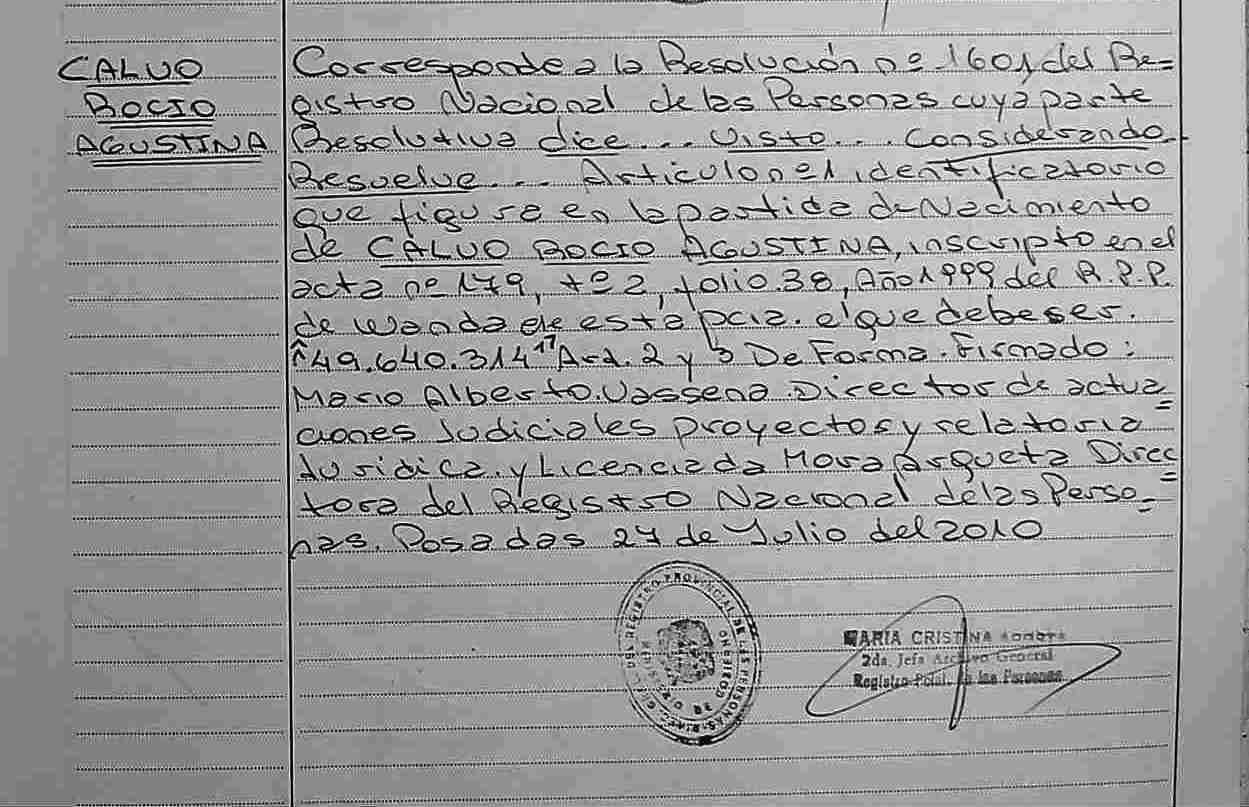 CALVO
ROCIO
AGUSTINA
Corresponde a la Resolución nº 1601 del Re=
gistro Nacional de las Personas cuya parte
Resolutiva dice... Visto... Considerando
Resuelve... Articulo nº1 identificatorio
que figura en la partida de Nacimiento
de CALVO ROCIO AGUSTINA, inscripto en el
acta nº 179, tº 2, folio.38, Año 1999 del R.P.P.
de Wanda de esta pcia. el que debe ser.
"49.640.314" Art. 2 y 3 De Forma. Firmado:
Mario Alberto Vassena Director de actua=
ciones Judiciales proyectos y relatoria
Juridica. y Licenciada Mora Arqueta Direc=
tora del Registro Nacional de las Perso=
nas. Posadas 27 de Julio del 2010
REGISTRO PROVINCIAL DE LAS PERSONAS
MARIA CRISTINA
2da. Jefa Archivo General
Registro Pcial. de las Personas